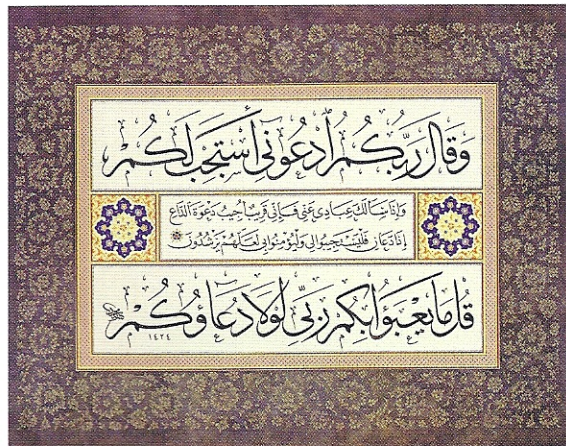 وَقَالَ رَبُّكُمُ ٱدْعُونِي أَسْتَجِبْ لَكُمْ
وَإِذَا سَأَلَكَ عِبَادِي عَنِّي فَإِنِّي قَرِيبٌ أُجِيبُ دَعْوَةَ الدَّاعِ
إِذَا دَعَانِ فَلْيَسْتَجِيبُوا لِي وَلْيُؤْمِنُوا بِي لَعَلَّهُمْ يَرْشُدُونَ
قُلْ مَا يَعْبَؤُا بِكُمْ رَبِّي لَوْلَا دُعَاؤُكُمْ
١٤٢٤